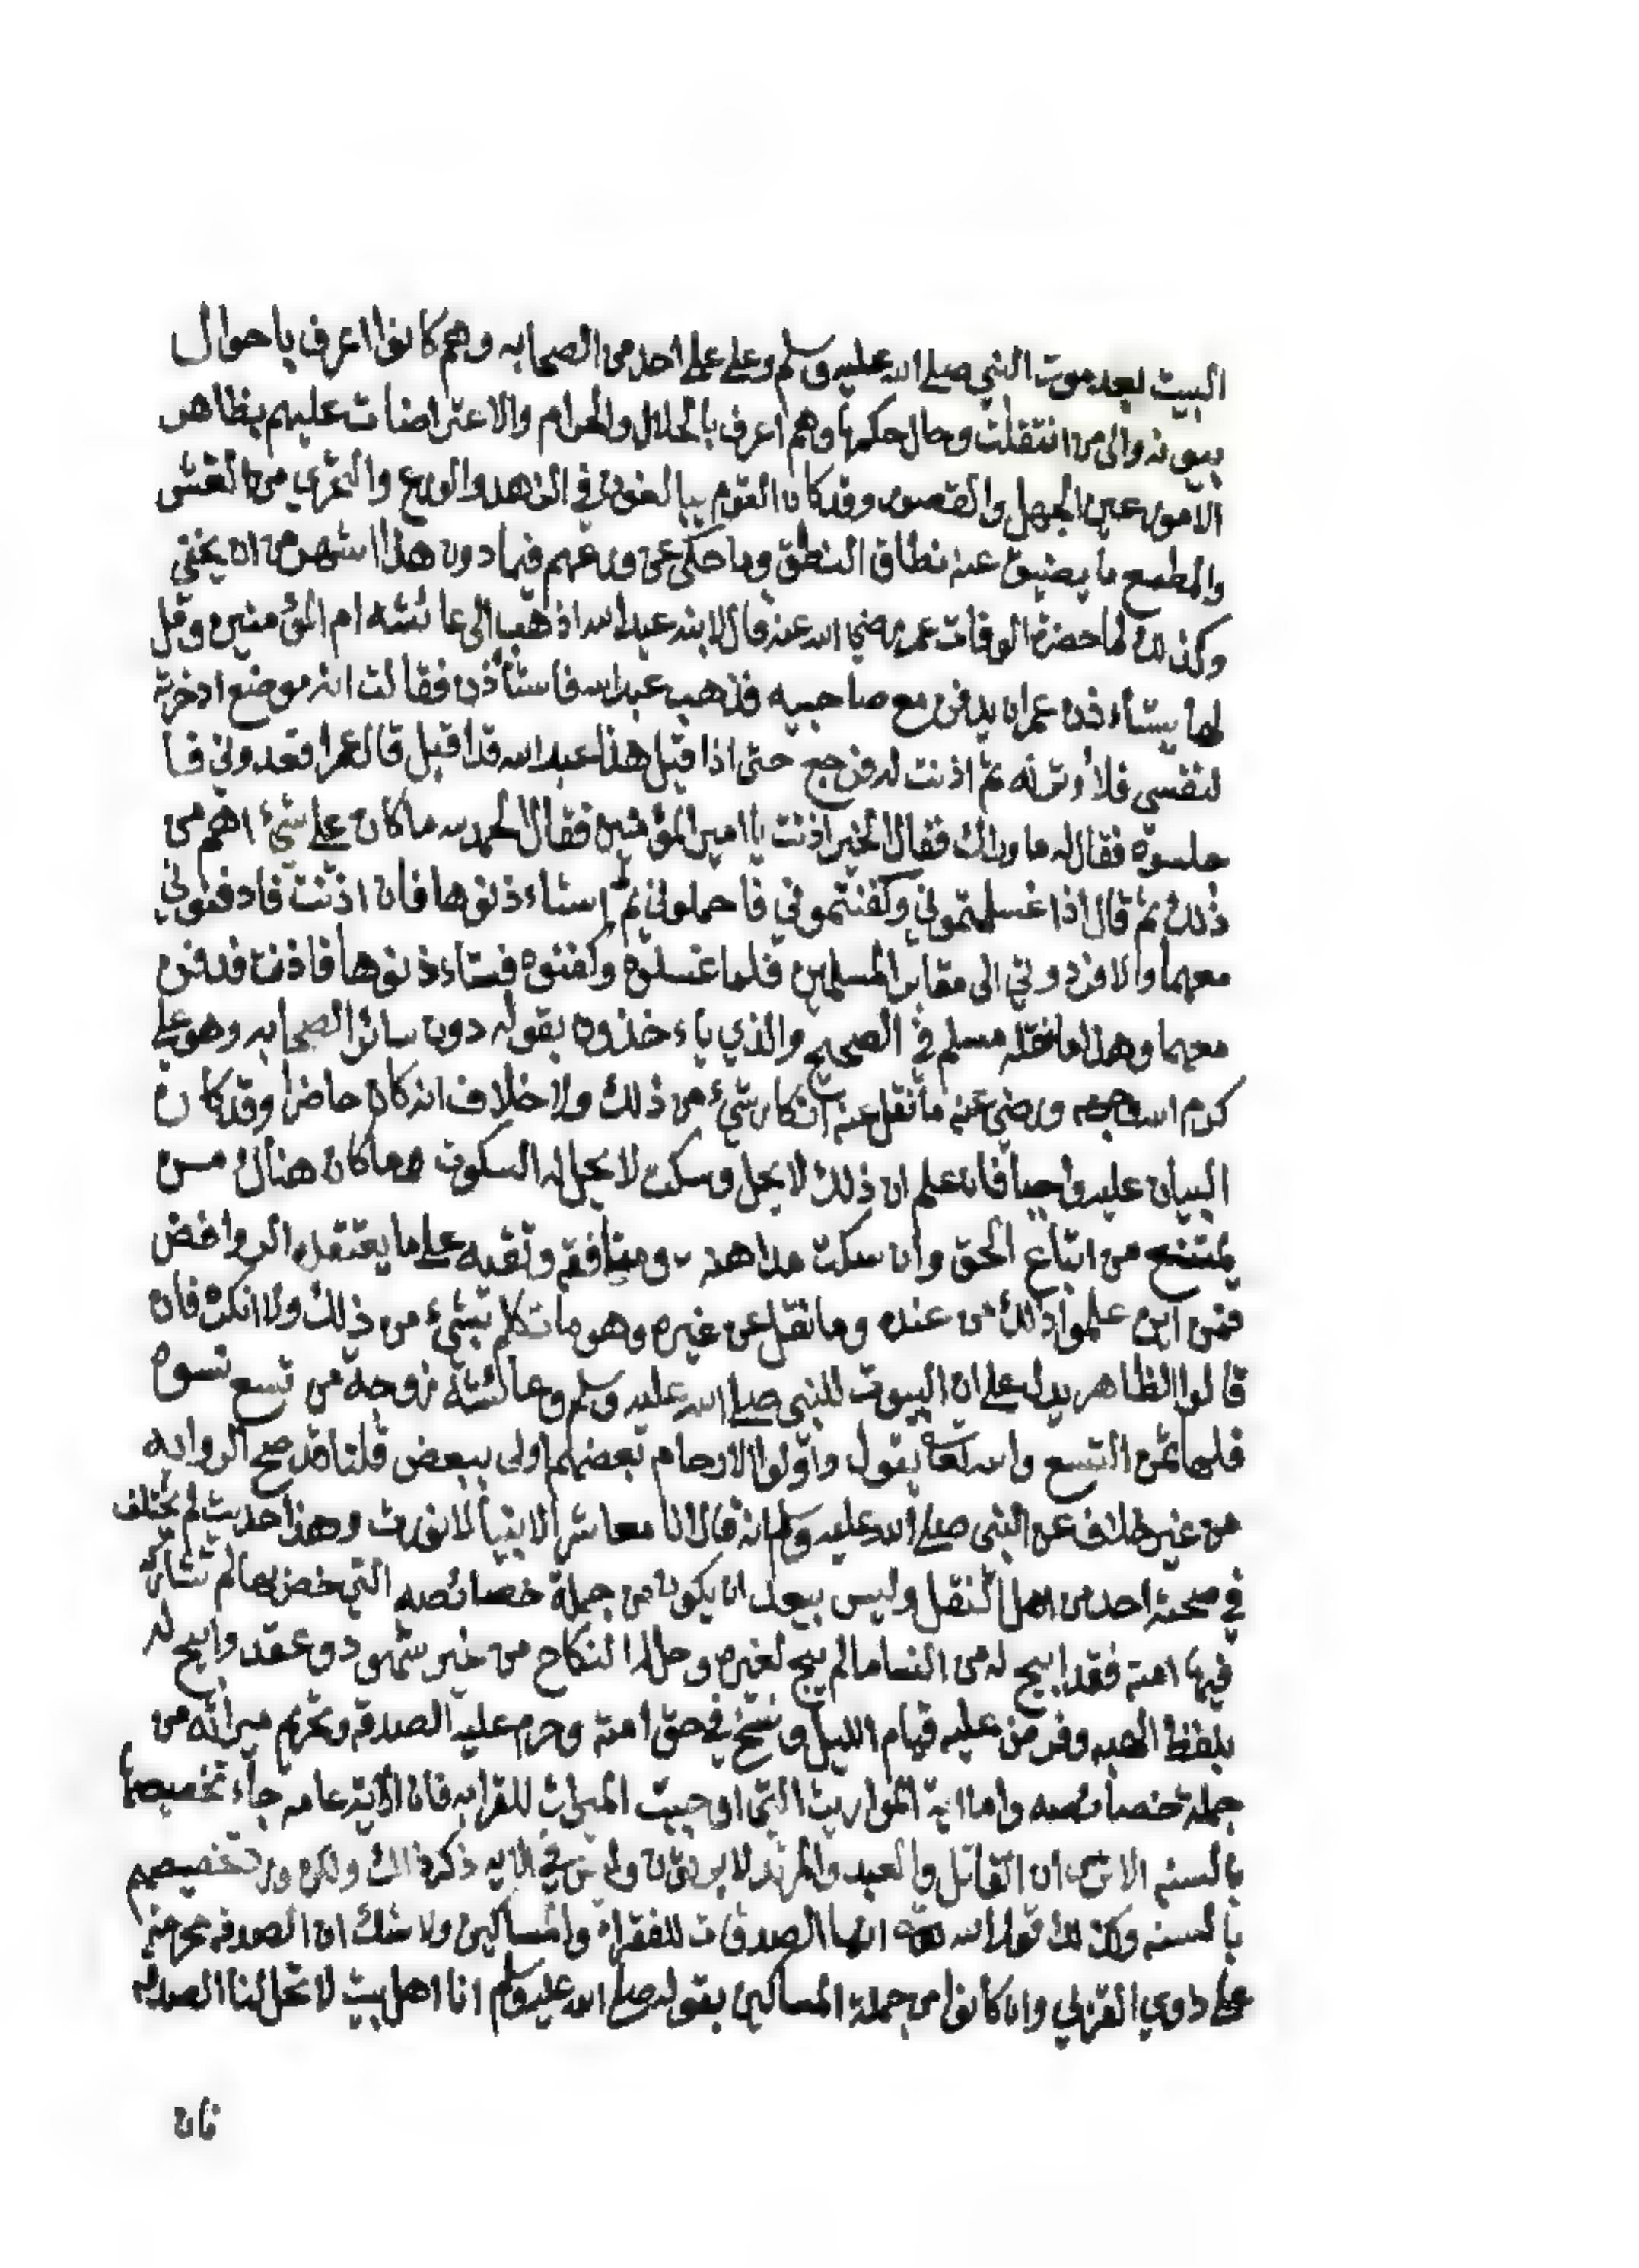 البيت بعد موت النبي صلى الله عليه وسلم وعلى علي احد من الصحابه وهم كانوا اعرف باحوال
بيوته والى من انتقلت وحال حكمها وهم اعرف بالحلال والحرام والاعتراضات عليهم بظاهر
الامور عين الجهل والقصور وقد كان القوم يبالغون في الزهد والورع والتحري من الغش
والطمع ما يضيق عنه نطاق النطق وما حكى عن ورعهم فيما دون هذا اشهر من ان يخفي
وكذلك لما حضرة الوفات عمر رضي الله عنه قال لابنه عبد الله اذهب الى عائشه ام المؤمنين وقل
لها يستاءذن عمر ان يدفن مع صاحبيه فذهب عبد الله فاستأذن فقالت انه موضع ادخرته
لنفسي فلأوثرنه ثم اذنت له فرجع حتى اذا قبل هذا عبد الله قد اقبل قال عمر اقعدوني فا
جلسوه فقال له ما وراك فقال الخير اذنت يا امير المؤمنين فقال الحمد لله ما كان علي شيء اهم من
ذلك ثم قال اذا غسلتموني وكفنتموني فاحملوني ثم استاءذنوها فان اذنت فادفنوني
معهما والا فردوني الى مقابر المسلمين فلما غسلوه وكفنوه فستاءذنوها فاذنت فدفن
معهما وهذا ما نقله مسلم في الصحيح والذي ياءخذون بقوله دون سائر الصحابه وهو علي
كرم الله وجهه ورضي عنه ما نقل عنه انكار شيء من ذلك ولا خلاف انه كان حاضرا وقد كان
البيان عليه واجبا فان علم ان ذلك لا يحل وسكت لا يحل له السكوت وما كان هنالك مـن
يمتنع من اتباع الحق وان سكت مداهنه ومنافقه وتقيه على ما يعتقده الروافض
فمن اين علموا ذلك من عنده وما نقل عن غيره وهو ما تكلم بشيء من ذلك ولا انكره فان
قالوا الظاهر يدل على ان البيوت للنبي صلى الله عليه وسلم وعائشة زوجة من تسع نسوه
فلها ثمن التسع والله تعا يقول واولوا الارحام بعضهم اولى ببعض قلنا قد صح الروايه
من غير خلاف عن النبي صلى الله عليه وسلم انه قال انا معاشر الانبيا لا نورث وهذا حديث لم يختلف
في صحته احد من اهل النقل وليس ببعيد ان يكون من جملة خصائصه التي خص بها لم تشاركه
فيها امته فقد ابيح له من النسا ما لم يبح لغيره وحل له النكاح من غير شهود وعقد وابيح له
بلفظ الهبه وفرض عليه قيام الليل ونسخ في حق امته وحرم عليه الصدقه وتحريم ميراثه من
جملة خصائصه واما اية المواريث التي اوجبت الميراث للقرابه فان الايه عامه جاء تخصيصها
بالسنه الا ترى ان القاتل والعبد والمرتد لا يورثان وليس في الايه ذكر ذلك ولكن ورد تخصيصهم
بالسنه وكذلك قول الله تعالى انما الصدقات للفقراء والمساكين ولا شك ان الصدقه محرمه
على ذوي القربي وان كانوا من جملة المساكين بقوله صلى الله عليه وسلم انا اهل بيت لا تحل لنا الصدقه
فان